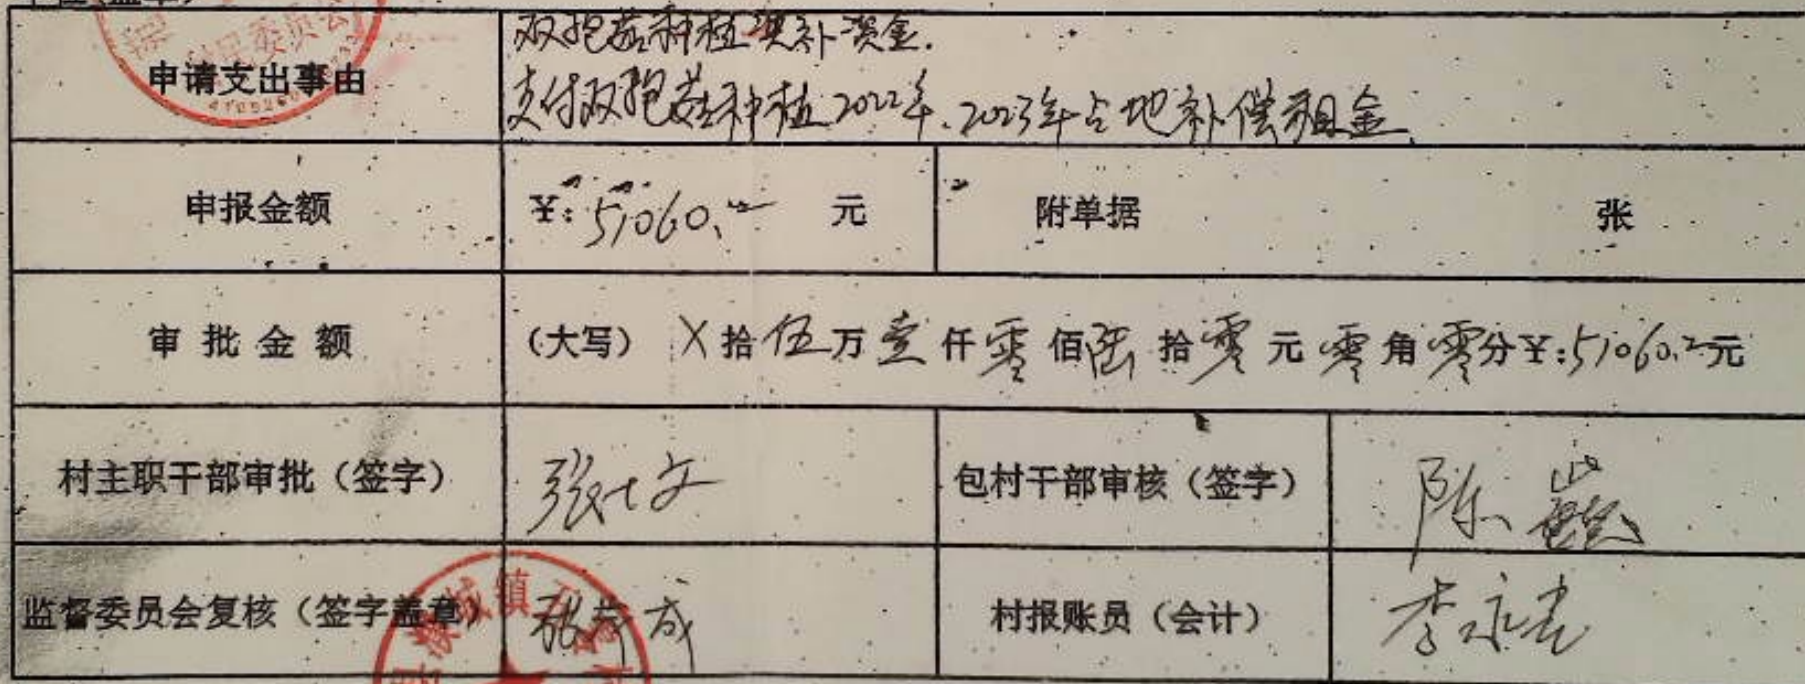 双孢菇种植奖补资金.
申请支出事由
支付双孢菇种植2022年、2023年占地补偿租金.
申报金额 ¥: 51060.- 元 附单据 张
审批金额 (大写) X拾伍万壹仟零佰陆拾零元零角零分¥:51060.-元
村主职干部审批（签字） 张 文 包村干部审核（签字） 陈巍
监督委员会复核（签字盖章） 张 成 村报账员（会计） 李永
村民委员会
城镇